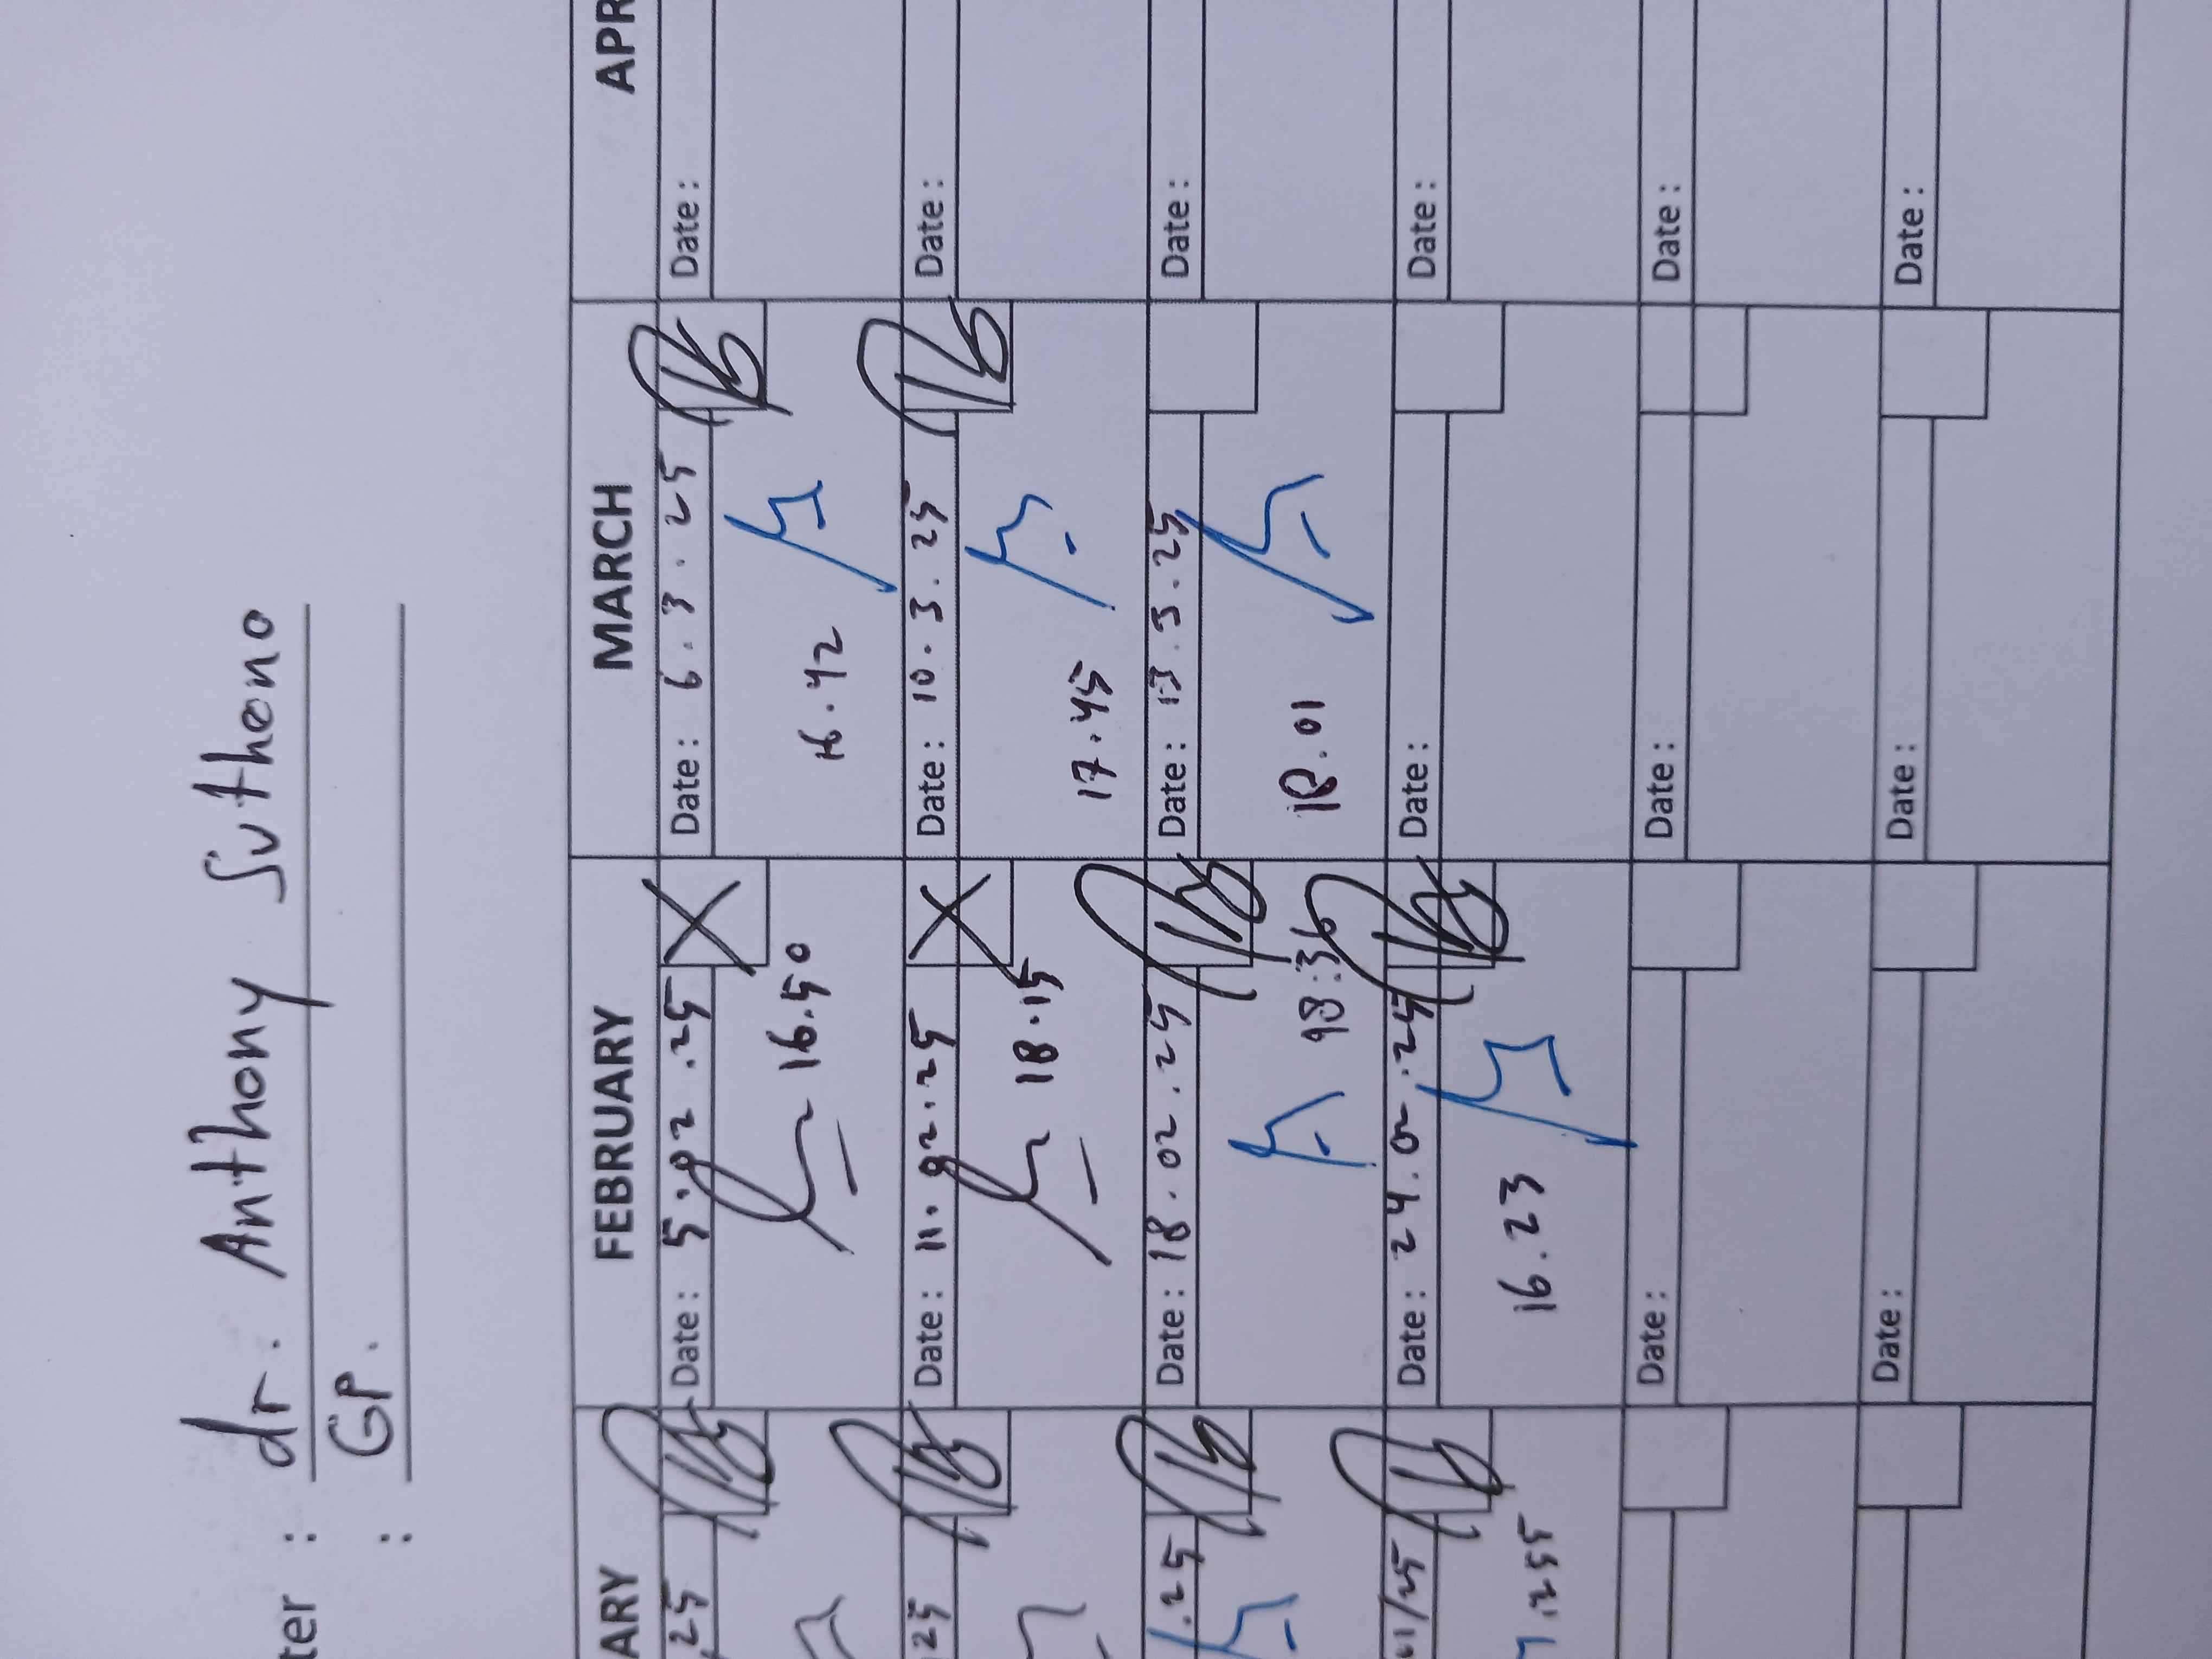 ter : dr. Anthony Sutheno
: GP.
ARY FEBRUARY MARCH APR
.25 Date: 5.02.25 Date: 6.3.25 Date:
16.50 16.42
25 Date: 11.02.25 Date: 10.3.25 Date:
18.15 17.45
.25 Date: 18.02.25 Date: 13.3.25 Date:
18:36 18.01
01/25 Date: 24.02.25 Date: Date:
16.23
Date: Date: Date:
Date: Date: Date: